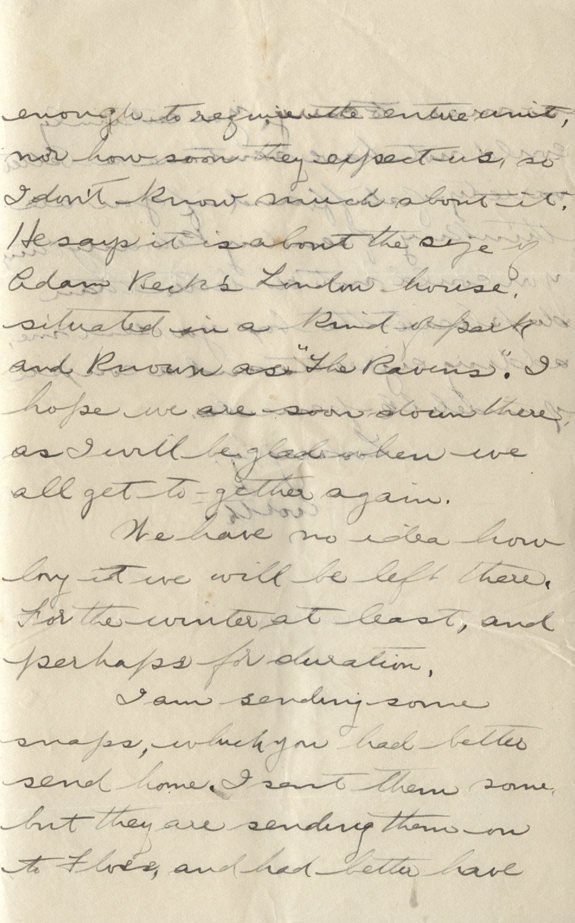 enough to require the entire unit,
nor how soon they expect us, so
I don't know much about it.
He says it is about the size of
Adam Beck's London house,
situated in a kind of park
and known as "The Ravens". I
hope we are soon down there,
as I will be glad when we
all get to-gether again.
We have no idea how
long it we will be left there.
For the winter at least, and
perhaps for duration.
I am sending some
snaps, which you had better
send home. I sent them some,
but they are sending them on
to Floss, and had better have